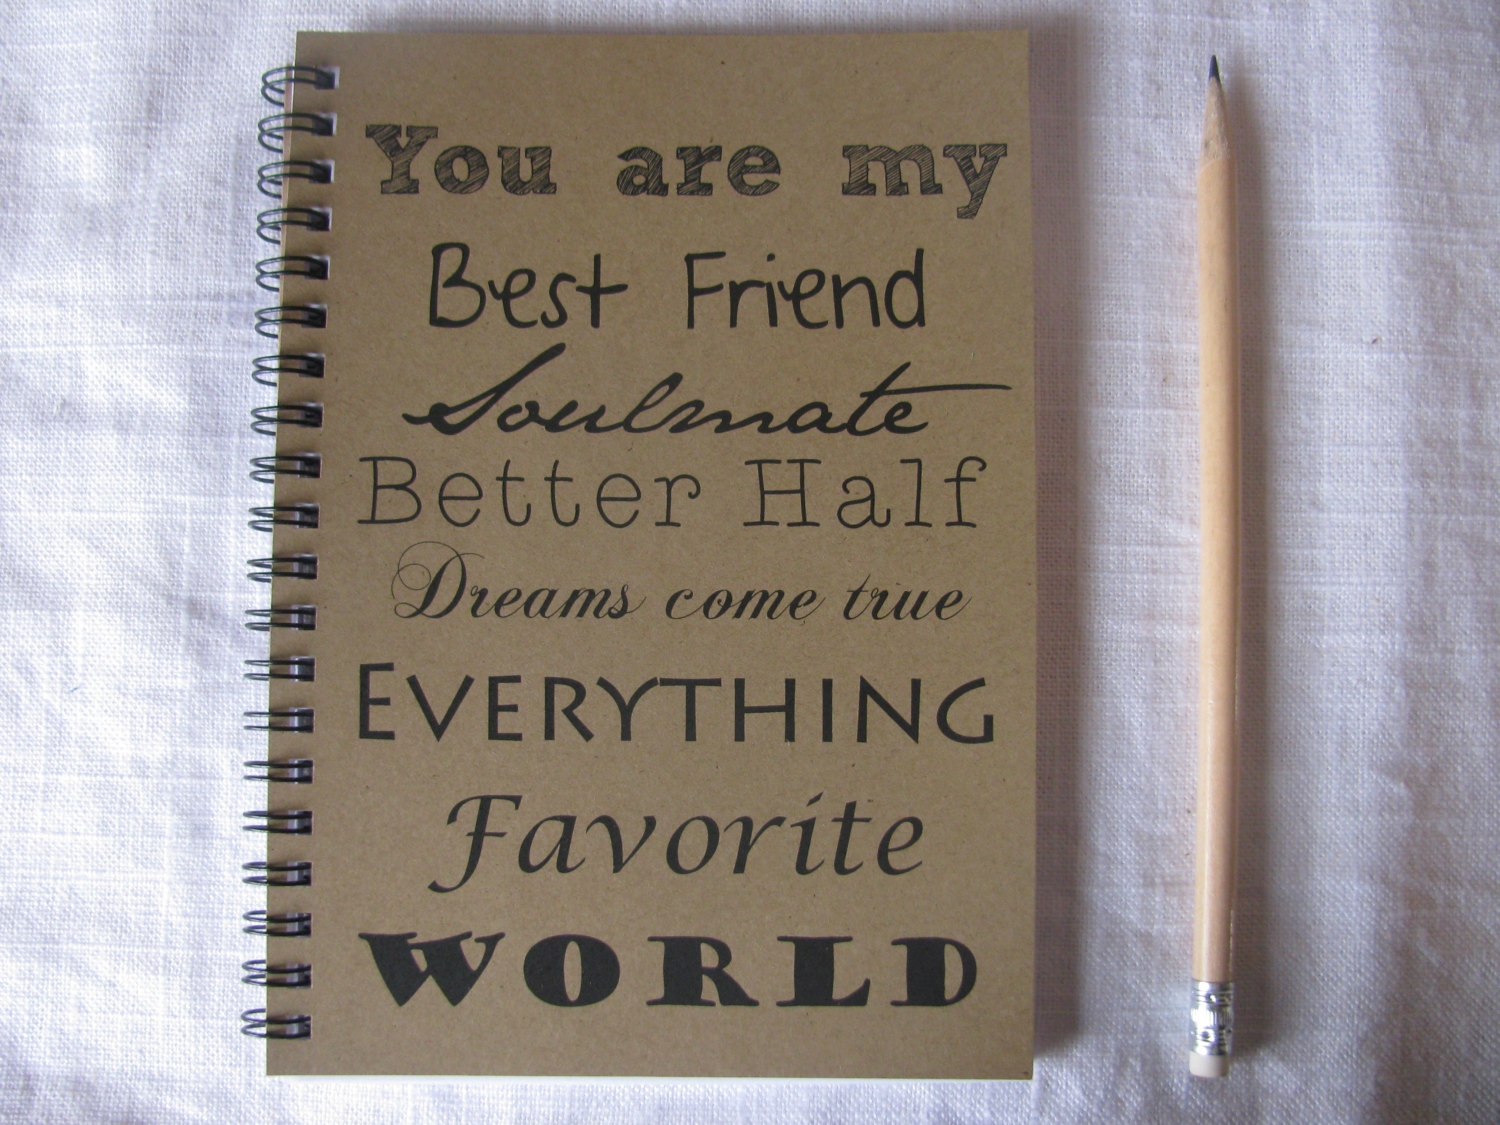 You are my
Best Friend
Soulmate
Better Half
Dreams come true
EVERYTHING
Favorite
WORLD